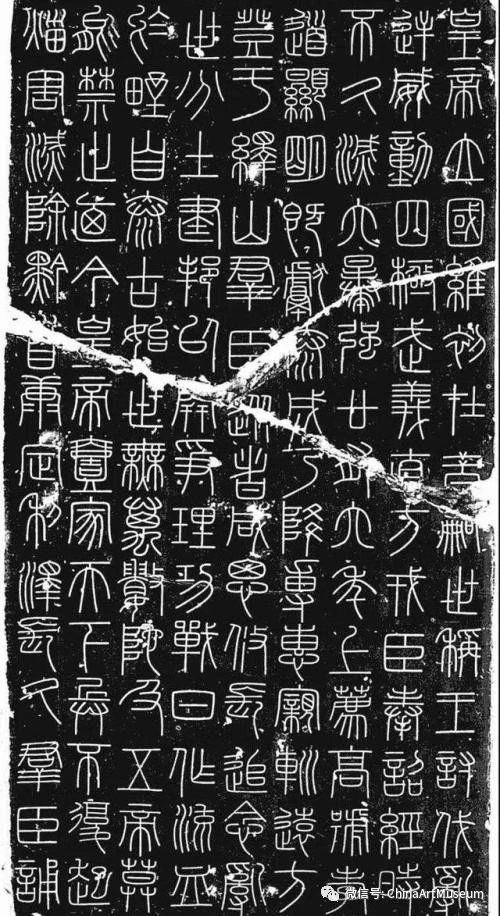 皇帝立國維初在昔嗣世稱王討伐亂
逆威動四極武義直方戎臣奉詔經時
不久滅六暴強廿有六年上薦高號孝
道顯明既獻泰成乃降專惠親巡遠方
登于繹山群臣從者咸思攸長追念亂
世分土建邦以開爭理功戰日作流血
於野自泰古始世無萬數陀及五帝莫
能禁止迺今皇帝壹家天下兵不復起
災害滅除黔首康定利澤長久群臣誦
微信号: ChinaArtMuseum